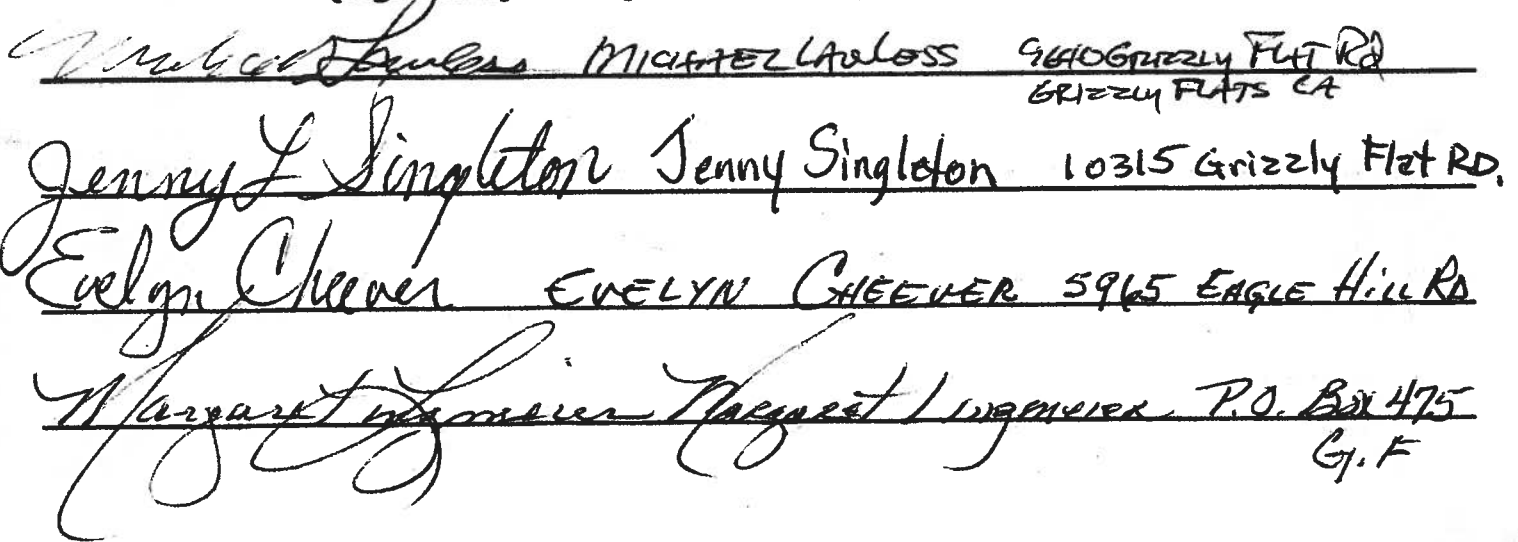 Michael Lawless MICHAEL LAWLESS 9610 GRIZZLY FLAT Rd
GRIZZLY FLATS CA
Jenny L Singleton Jenny Singleton 10315 Grizzly Flat RD.
Evelyn Cheever EVELYN CHEEVER 5965 EAGLE Hill RD
Margaret Margaret P.O. Box 475
G.F